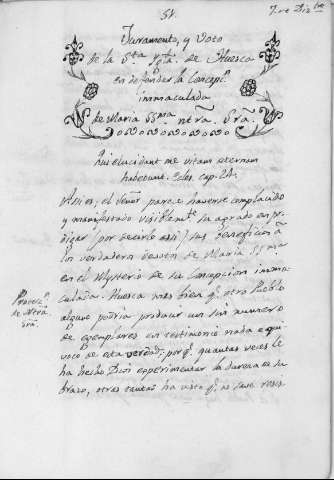 51.
Juramento, y Voto
de la Sta Yglã. de Huesca
en defender la Concepn.
immaculada
de Maria SSma. ntrã. Srã.
Qui elucidant me vitam æternam
habebunt. Eclesi. cap. 24.
Asi es; el Señor parece haverse complacido
y manifestado visiblemte. su agrado en pro-
digar (por decirlo assi) sus beneficios â
los verdaderos devotos de Maria SSma.
en el Mysterio de su Concepcion inma-
culada. Huesca mas bien q. otro Pueblo
alguno podria producir un sin numero
de exemplares en testimonio nada equi-
voco de esta verdad; porq. quantas veces le
ha hecho Dios experimentar la dureza de su
brazo, otras tantas ha visto q. se save
Procesn.
de Ntrã
Srã.